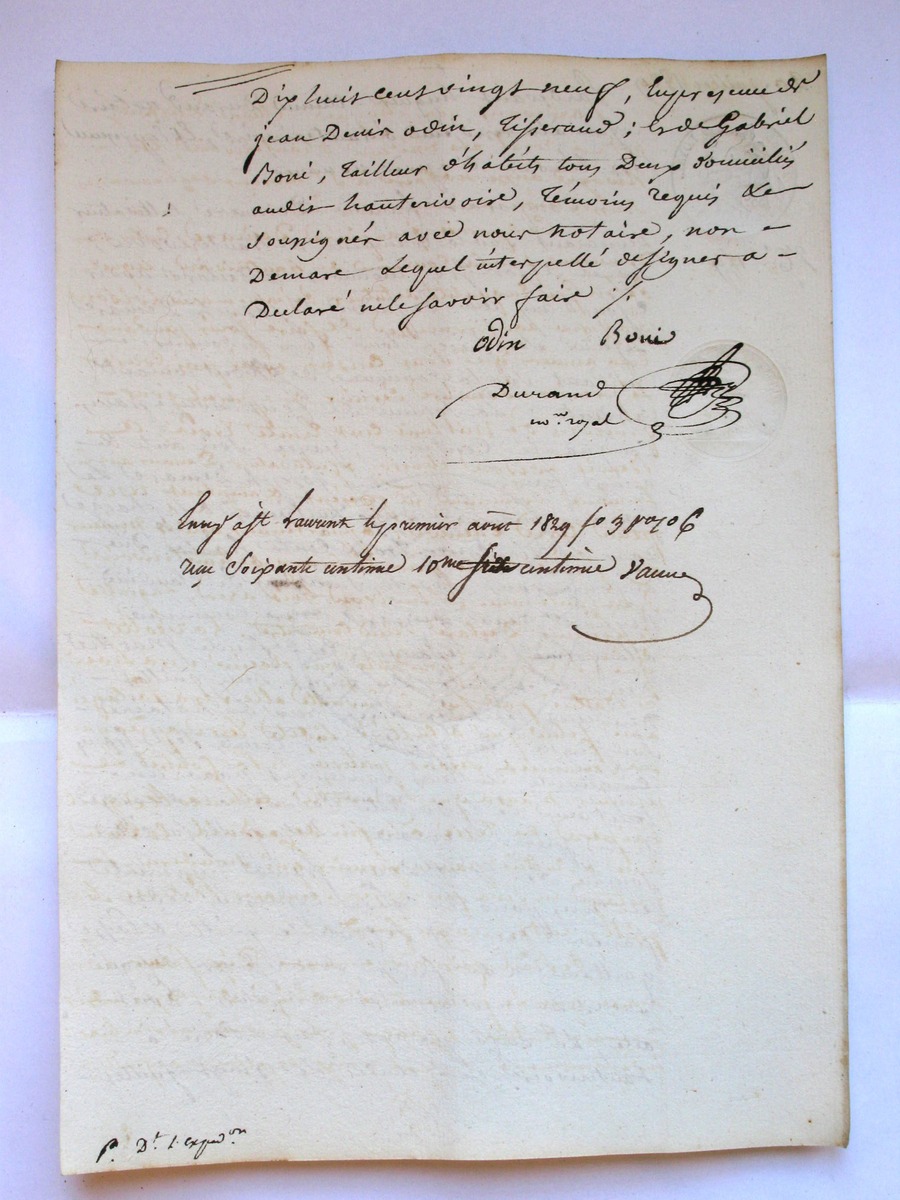 Dix huit cent vingt neuf, En presence de
jean Denis odin, Tisserand; & de Gabriel
Boni, Tailleur d'habits tous Deux domiciliés
audit hauterivoire, Témoins requis &
soussignés avec nous notaire, non
Demare Lequel interpellé de signer a
Declaré ne le savoir faire ./.
odin Boni
Durand
no.re royal
St Laurent le premier août 1829 fo 3
soixante centime 10me six centime
p. Dt 1. exped.on